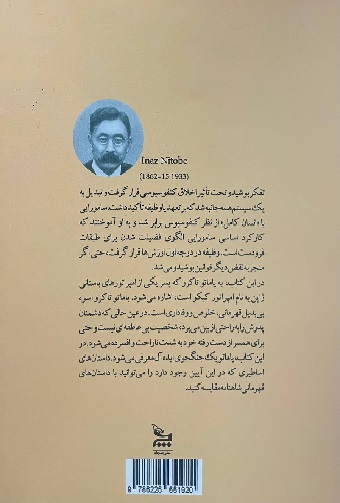 Inaz Nitobe
(1862-15.1933)
تفکر بوشیدو تحت تأثیر اخلاق کنفوسیوسی قرار گرفت و تبدیل به
یک سیستم همه‌جانبه شد که بر تعهد یا وظیفه تأکید داشت. سامورایی
با «انسان کامل» از نظر کنفوسیوس برابر شد و به او آموختند که
کارکرد اساسی سامورایی الگوی فضیلت شدن برای طبقات
فرودست است. وظیفه در درجه اول ارزش‌ها قرار گرفت، حتی اگر
منجر به نقض دیگر قوانین بوشیدو می‌شد.
در این کتاب به یاماتو تاکرو که پسر یکی از امپراتورهای باستانی
ژاپن به نام امپراتور کیکو است، اشاره می‌شود. یاماتو تاکرو اسوه
بی‌بدیل قهرمانی، خلوص و وفاداری است. در عین حالی که دشمنان
پدرش را به راحتی از بین می‌برد، شخصیت بی عاطفه‌ای نیست و حتی
برای همسر از دست رفته خود به شدت ناراحت و افسرده می‌شود. در
این کتاب، یاماتو یک جنگجوی ایده‌آل معرفی می‌شود. داستان‌های
اساطیری که در این آیین وجود دارد را می‌توانید با داستان‌های
قهرمانی شاهنامه مقایسه کنید.
9 786226 661920